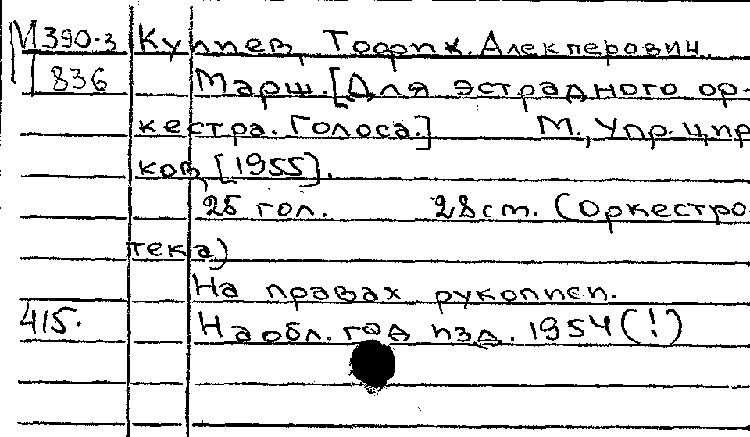 М 390-3 Кулиев, Тофик Алекперович.
836 Марш. [Для эстрадного ор-
кестра. Голоса.] М., Упр. цир
ков, [1955].
25 гол. 28 cm. (Оркестро
тека)
На правах рукописи.
415. На обл. год изд. 1954 (!)